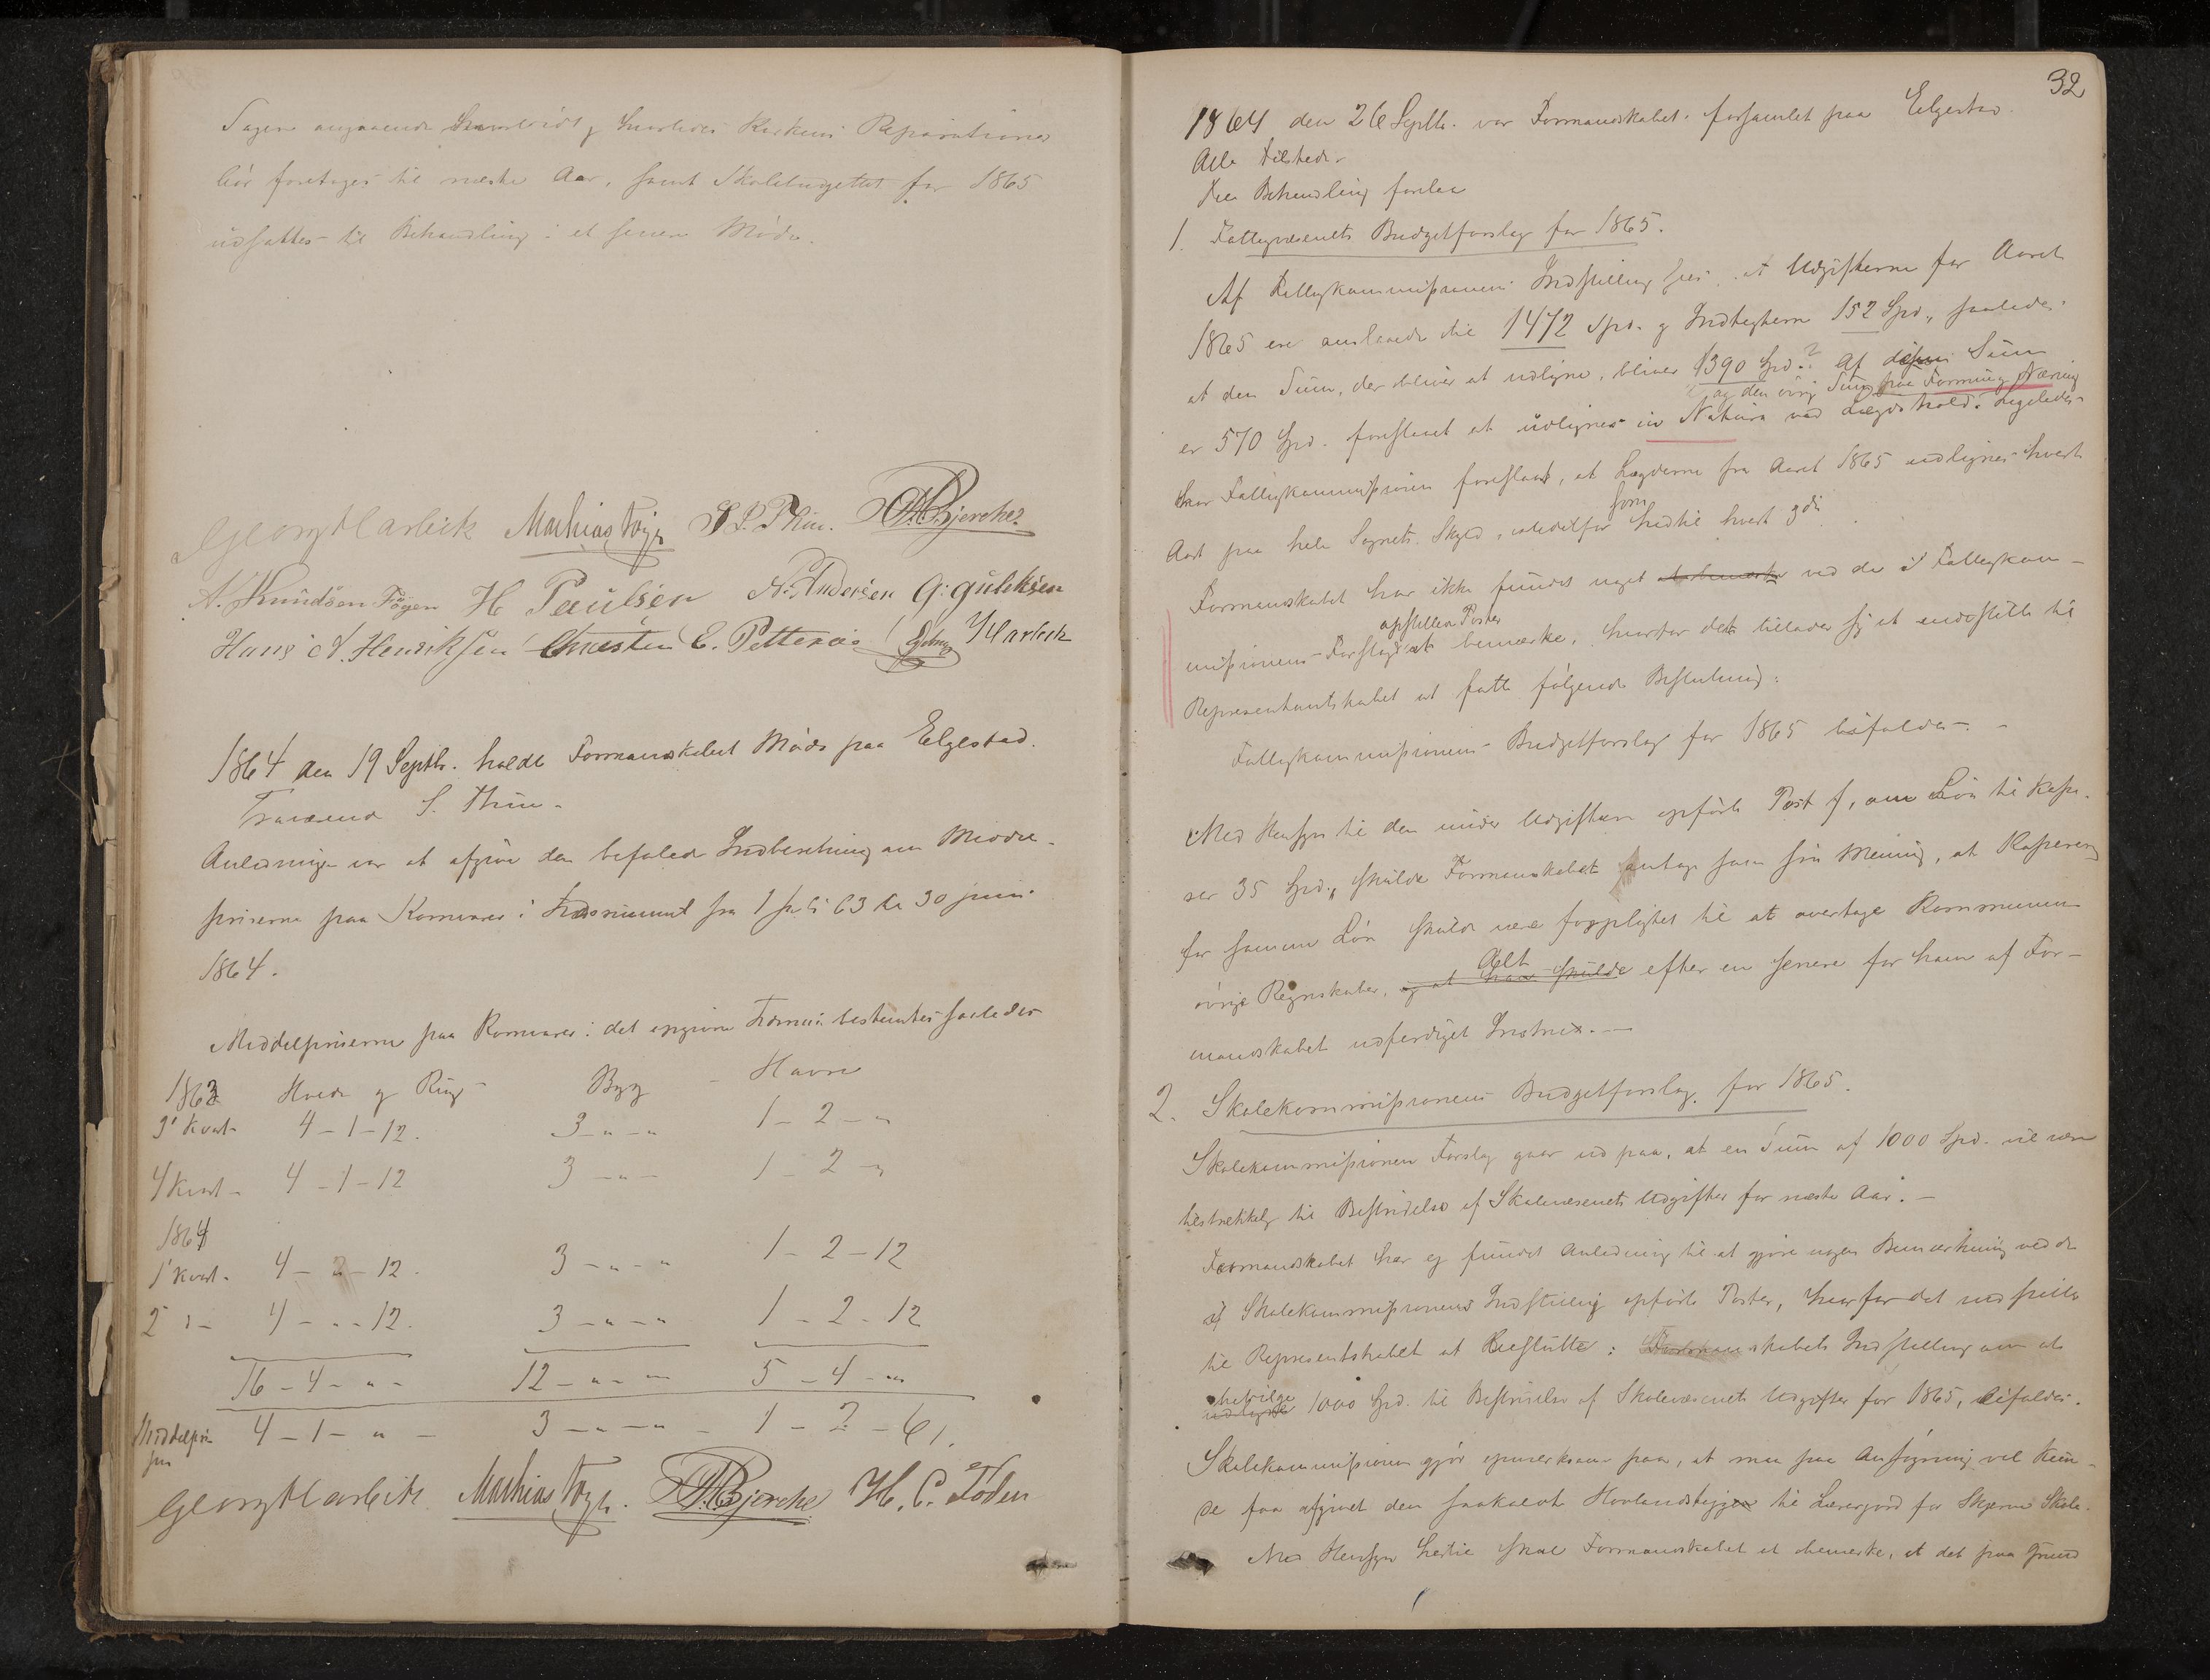 Sagen angaaende hvorvidt og hvorledes Kirkens Reparationer
bör foretages til næste Aar, samt Skolebudgettet for 1865
udsattes til Behandling i et senere Möde.
Georg Harbek Mathias Foÿn S. P. Thue. A. Bjerche
A. Knudsen Föÿen H Paulsen A. Andersen G: guleksen
Hans A. Henriksen Christen C. Petteröe Harbek
1864 den 19 Septb. holdt Formanskabet Möde paa Elgestad.
Fraværend S. Thue.
Anledningen var at afgive den befalede Indberetning om Middel-
priserne paa Kornvarer i Tidsrummet fra 1 Juli 63 til 30 juni
1864.
Middelpriserne paa Kornvarer i det opgivne Tidsrum bestemtes saaledes
1863 Hvede og Rug Byg - Havre
3' Kvart. 4 - 1 - 12. 3 - " - " 1 - 2 - "
4 Kvart - 4 - 1 - 12 3 - " - 1 - 2 - "
1864
1' Kvart. 4 - " - 12. 3 - " - " 1 - 2 - 12
2 " - 4 - " - 12. 3 - " - " 1 - 2 - 12
16 - 4 - " - 12 - " - " 5 - 4 - "
Middelpri-
sen 4 - 1 - " - 3 - " - " - 1 - 2 - 6.
Georg Harbek Mathias Foÿn. A. Bjerche H. C. Foden
32
1864 den 26 Septb. var Formandskabet forsamlet paa Elgestad.
Alle tilstede.
Til Behandling forelaa
1. Fattigvæsenets Budgetforslag for 1865.
Af Fattigkommissionens Indstilling sees, at Udgifterne for Aaret
1865 ere anslaaede til 1472 Spd. og Indtægterne 152 Spd., saaledes
at den Sum, der bliver at udligne, bliver 1390 Spd.? Af denne Sum
og den övrige Sum paa Formue og Næring
er 570 Spd. foreslaaet at udlignes in Natura ved Lægdshold. Ligeledes
har Fattigkommissionen foreslaaet, at Lægderne fra Aaret 1865 udlignes hvert
Aar paa hele Sognets Skyld, istedetfor som hidtil hvert 3die.
Formanskabet har ikke fundet noget at bemærke ved de i Fattigkom-
opstillede Poster
missionens Forslag at bemærke, hvorfor det tillader sig at indstille til
Representantskabet at fatte fölgende Beslutning:
Fattigkommissionens Budgetforslag for 1865 bifaldes. -
Med Hensyn til den under Udgifterne opförte Post f, om Lön til Kasse-
rer 35 Spd., skulde Formanskabet antage som sin Mening, at Kassereren
for samme Lön skulde være forpligtet til at overtage Kommunens
övrige Regnskaber, og at han skulde Alt efter en senere for ham af For-
mandskabet udferdiget Instrux. -
2. Skolekommissionens Budgetforslag for 1865.
Skolekommissionens Forslag gaar ud paa, at en Sum af 1000 Spd. vil være
tilstrækkelig til Bestridelse af Skolevæsenets Udgifter for næste Aar. -
Formandskabet har ej fundet Anledning til at gjöre nogen Bemærkning ved de
af Skolekommissionens Indstilling opförte Poster, hvorfor det indstiller
til Representskabet at beslutte: Formanskabets Indstilling om at
udligne bevilge 1000 Spd. til Bestridelse af Skolevæsenets Udgifter for 1865, bifaldes.
Skolekommissionen gjör opmerksom paa, at man paa Ansögning vil kun-
de faa afgivet den saakaldte til Lærerjord for Skjerve Skole.
Med Hensyn hertil skal Formandskabet at bemerke, at det paa Grund